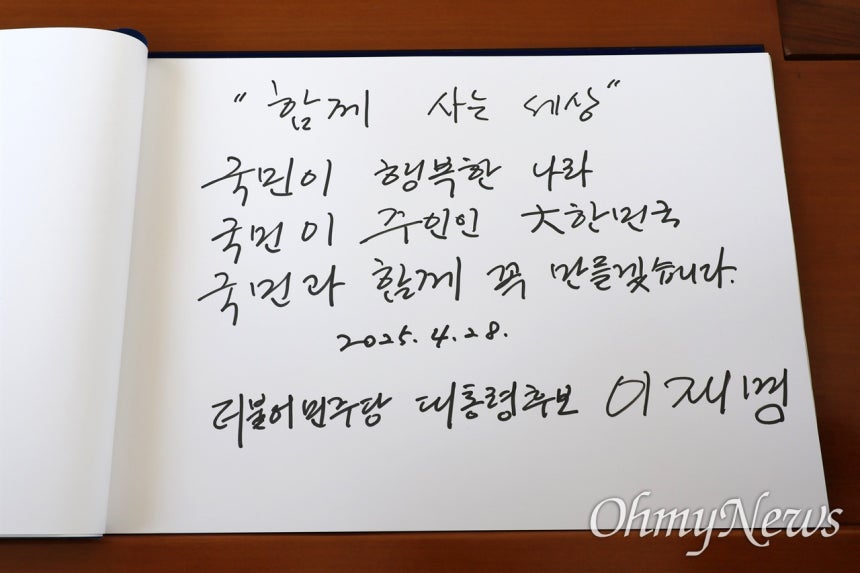 "함께 사는 세상"
국민이 행복한 나라
국민이 주인인 大한민국
국민과 함께 꼭 만들겠습니다.
2025. 4. 28.
더불어민주당 대통령후보 이재명
OhmyNews